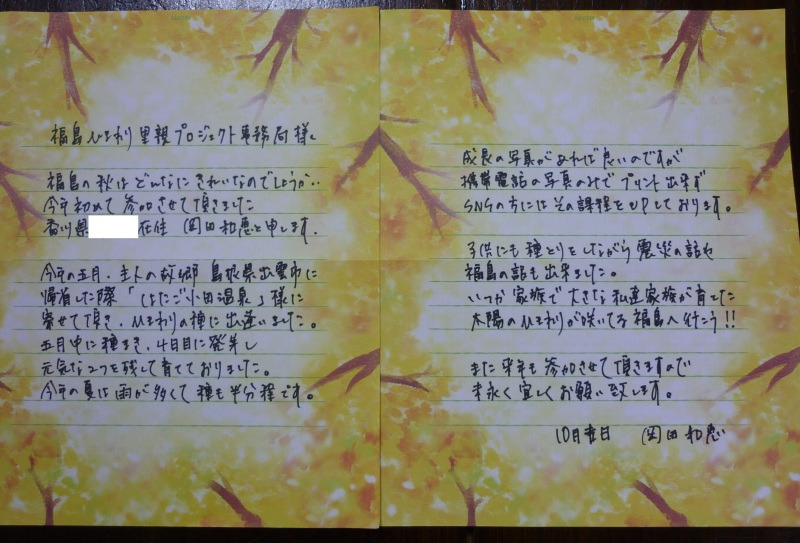 福島ひまわり里親プロジェクト事務局様、
福島の秋はどんなにきれいなのでしょうか..
今年初めて参加させて頂きました
香川県 在住 岡田和恵と申します.
今年の五月、主人の故郷 島根県出雲市に
帰省した際「はたご小田温泉」様に
寄せて頂き、ひまわりの種に出逢いました。
五月中に種まき、4日目に発芽し
元気な2つを残して育てておりました。
今年の夏は雨が多くて種も半分程です。
成長の写真があれば良いのですが
携帯電話の写真のみでプリント出来ず
SNSの方にはその課程をUPしております。
子供にも種とりをしながら震災の話や
福島の話も出来ました。
いつか家族で大きな私達家族が育てた
太陽のひまわりが咲いてる福島へ行こう!!
また来年も参加させて頂きますので
末永く宜しくお願い致します。
10月 日 岡田和恵